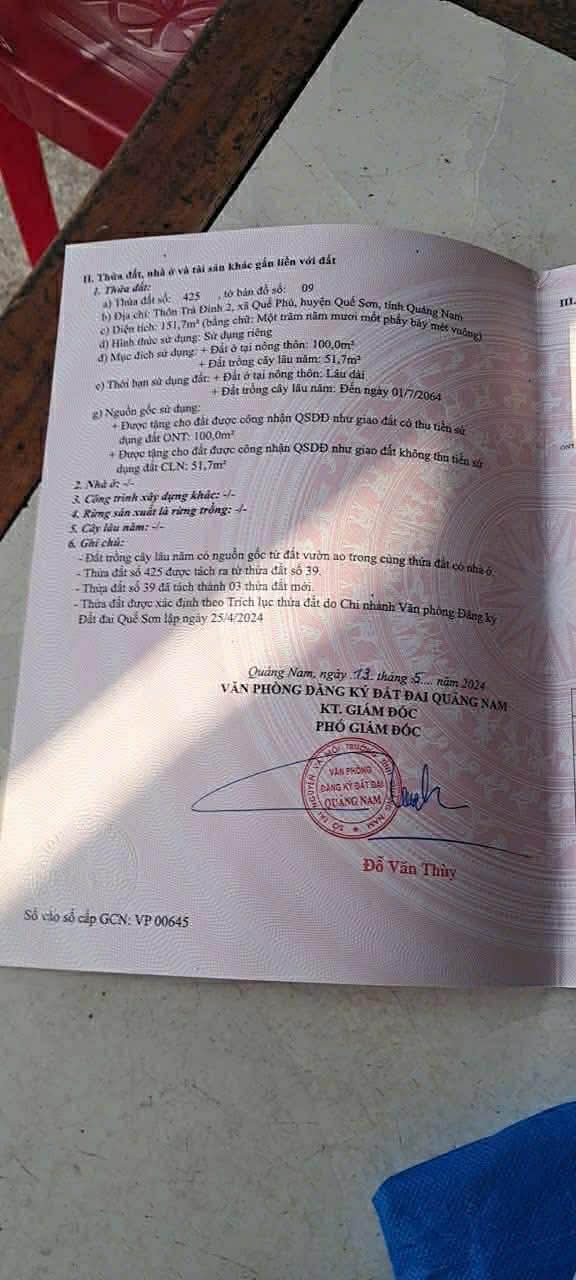 II. Thửa đất, nhà ở và tài sản khác gắn liền với đất
1. Thửa đất:
a) Thửa đất số: 425 , tờ bản đồ số: 09
b) Địa chỉ: Thôn Trà Đình 2, xã Quế Phú, huyện Quế Sơn, tỉnh Quảng Nam
c) Diện tích: 151,7m² (bằng chữ: Một trăm năm mươi mốt phẩy bảy mét vuông)
d) Hình thức sử dụng: Sử dụng riêng
đ) Mục đích sử dụng: + Đất ở tại nông thôn: 100,0m²
+ Đất trồng cây lâu năm: 51,7m²
e) Thời hạn sử dụng đất: + Đất ở tại nông thôn: Lâu dài
+ Đất trồng cây lâu năm: Đến ngày 01/7/2064
g) Nguồn gốc sử dụng:
+ Được tặng cho đất được công nhận QSDĐ như giao đất có thu tiền sử
dụng đất ONT: 100,0m²
+ Được tặng cho đất được công nhận QSDĐ như giao đất không thu tiền sử
dụng đất CLN: 51,7m²
2. Nhà ở: -/-
3. Công trình xây dựng khác: -/-
4. Rừng sản xuất là rừng trồng: -/-
5. Cây lâu năm: -/-
6. Ghi chú:
- Đất trồng cây lâu năm có nguồn gốc từ đất vườn ao trong cùng thửa đất có nhà ở.
- Thửa đất số 425 được tách ra từ thửa đất số 39.
- Thửa đất số 39 đã tách thành 03 thửa đất mới.
- Thửa đất được xác định theo Trích lục thửa đất do Chi nhánh Văn phòng Đăng ký
Đất đai Quế Sơn lập ngày 25/4/2024
Quảng Nam, ngày .13. tháng .5.... năm 2024
VĂN PHÒNG ĐĂNG KÝ ĐẤT ĐAI QUẢNG NAM
KT. GIÁM ĐỐC
PHÓ GIÁM ĐỐC
SỞ TÀI NGUYÊN VÀ MÔI TRƯỜNG TỈNH QUẢNG NAM
VĂN PHÒNG
ĐĂNG KÝ ĐẤT ĐAI
QUẢNG NAM
Đỗ Văn Thùy
Số vào sổ cấp GCN: VP 00645
III.
ONT